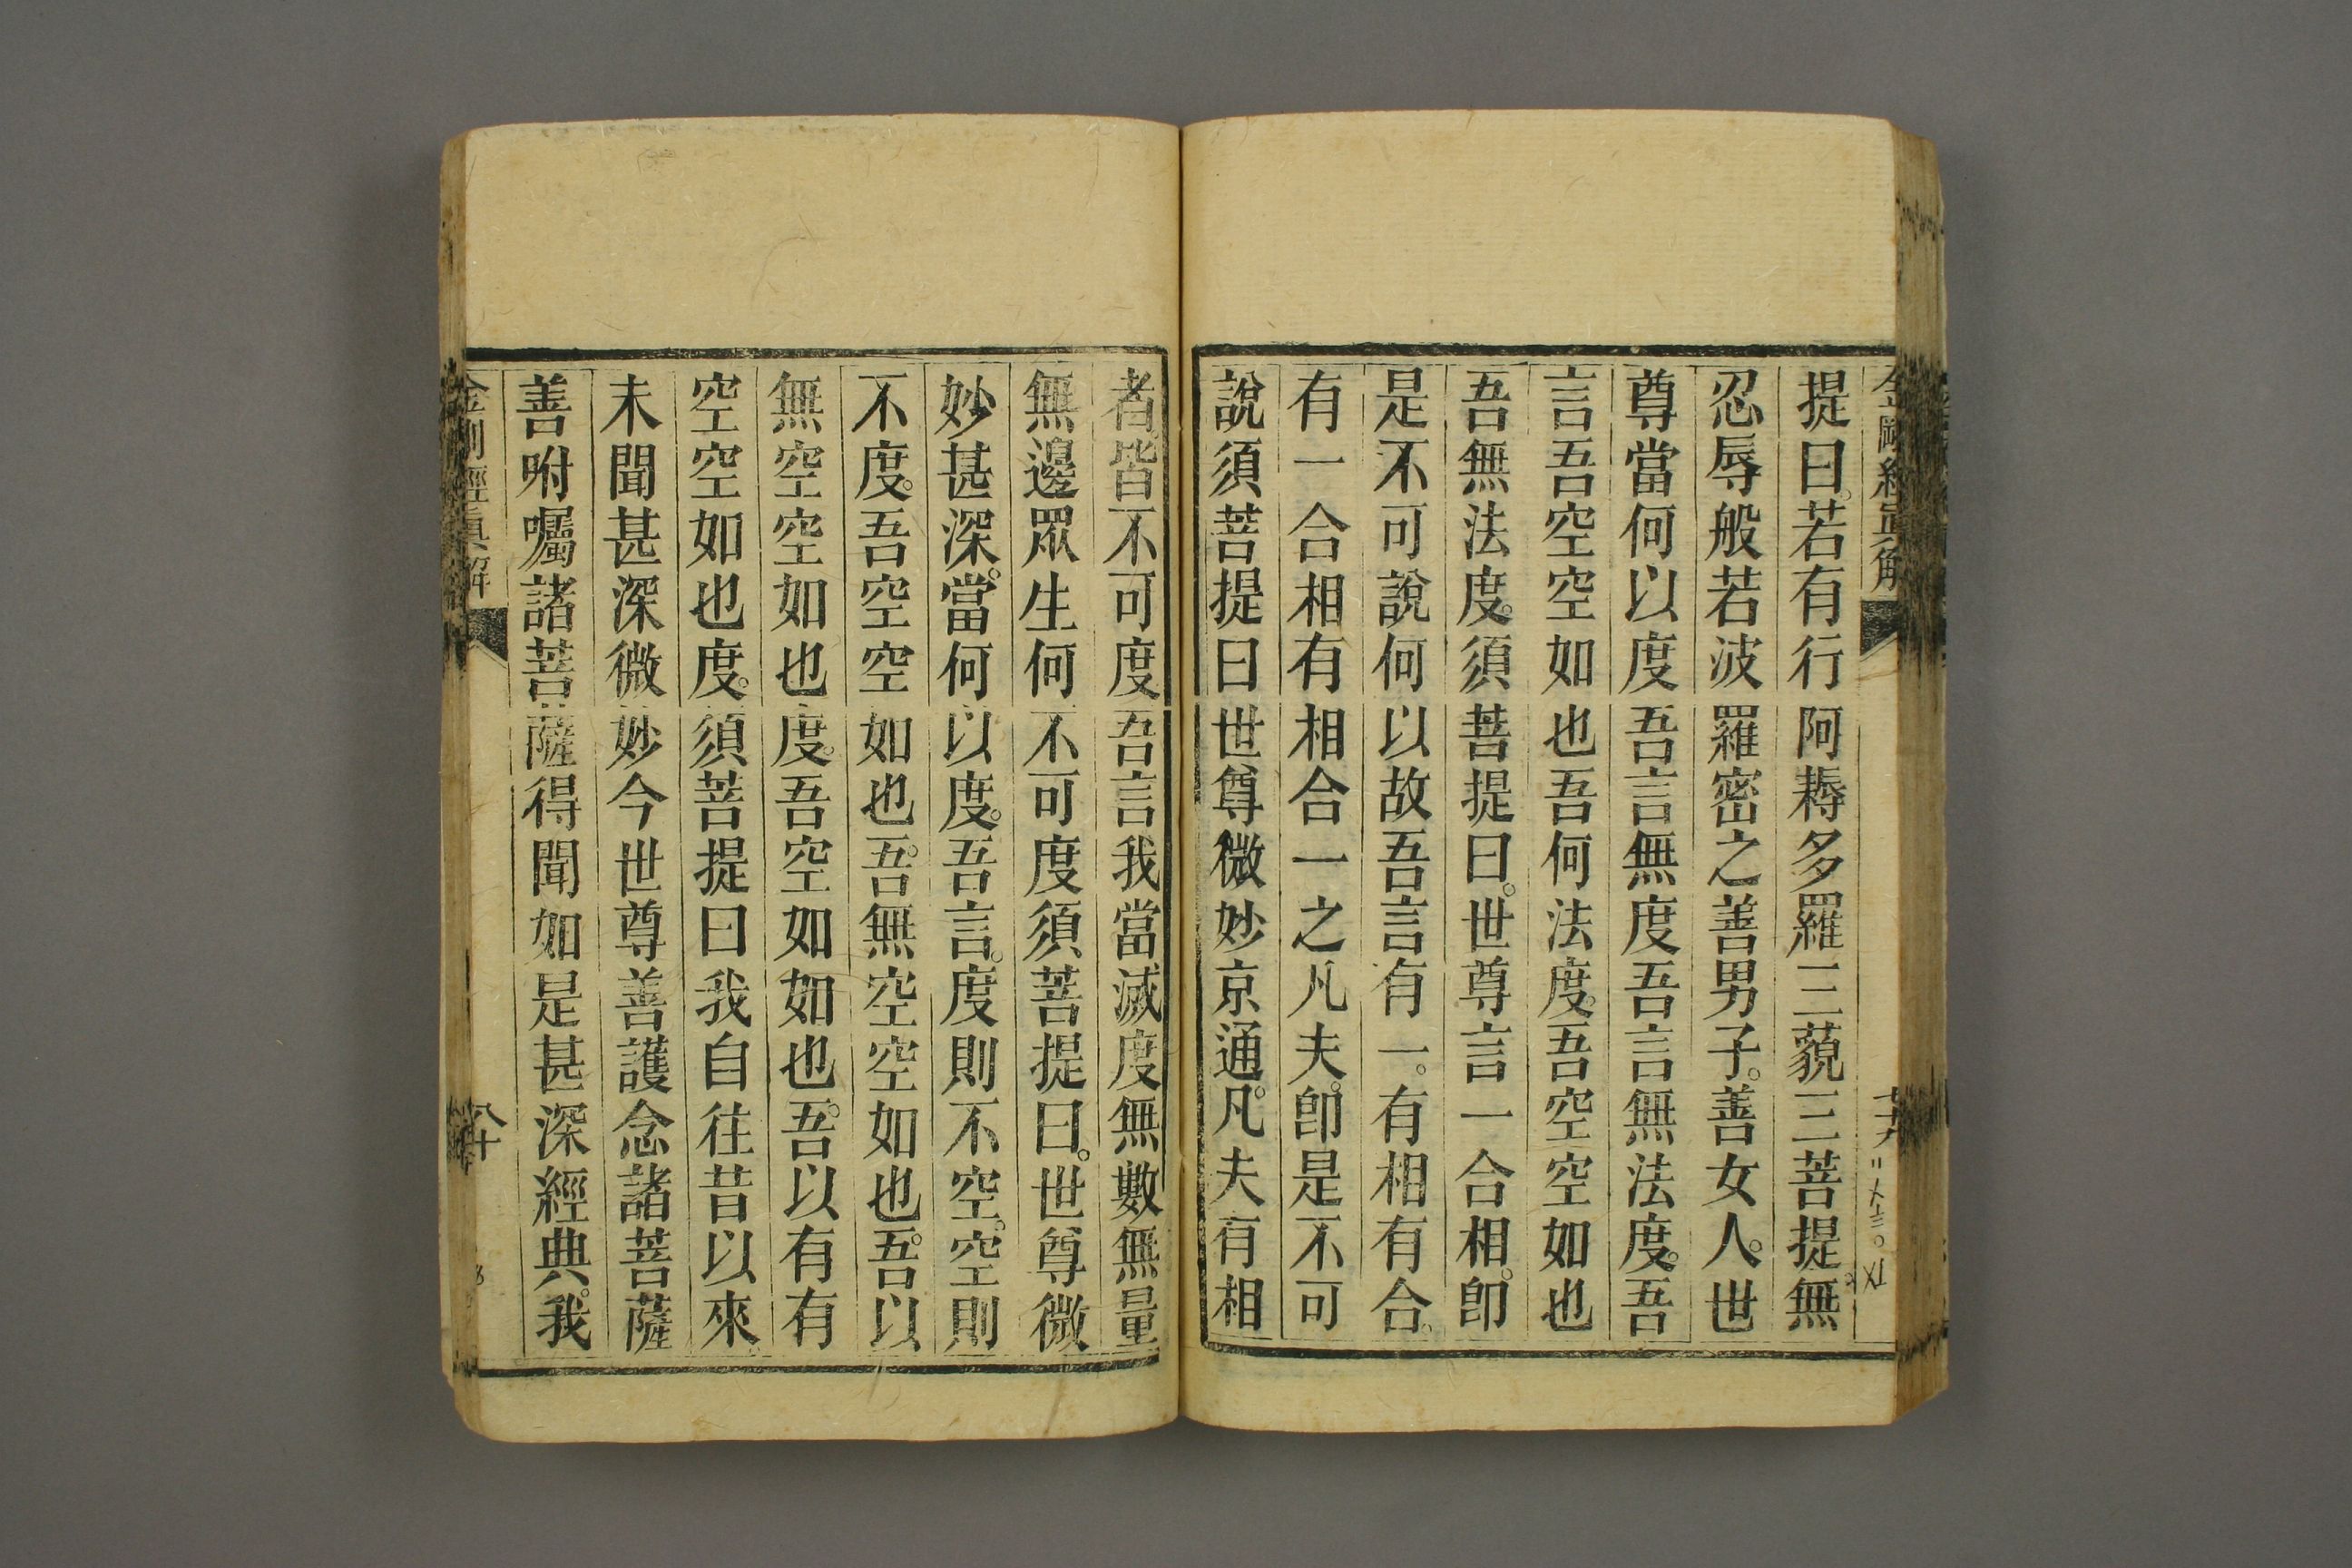 金剛經眞解
七十九
提曰。若有行阿耨多羅三藐三菩提。無
忍辱般若波羅密之善男子。善女人。世
尊當何以度吾言無度吾言無法度。吾
言吾空空如也吾何法度。吾空空如也
吾無法度。須菩提曰。世尊言一合相。卽
是不可說何以故吾言有一。有相有合。
有一合相有相合一之凡夫。卽是不可
說須菩提曰世尊微妙京通。凡夫有相
者。皆不可度吾言我當滅度無數無量
無邊眾生何不可度須菩提曰。世尊微
妙甚深。當何以度。吾言。度則不空。空則
不度。吾空空如也。吾無空空如也。吾以
無空空如也度。吾空如如也。吾以有有
空空如也度。須菩提曰我自往昔以來。
未聞甚深微妙今世尊善護念諸菩薩
善咐囑諸菩薩得聞如是甚深經典。我
金剛經眞解
八十